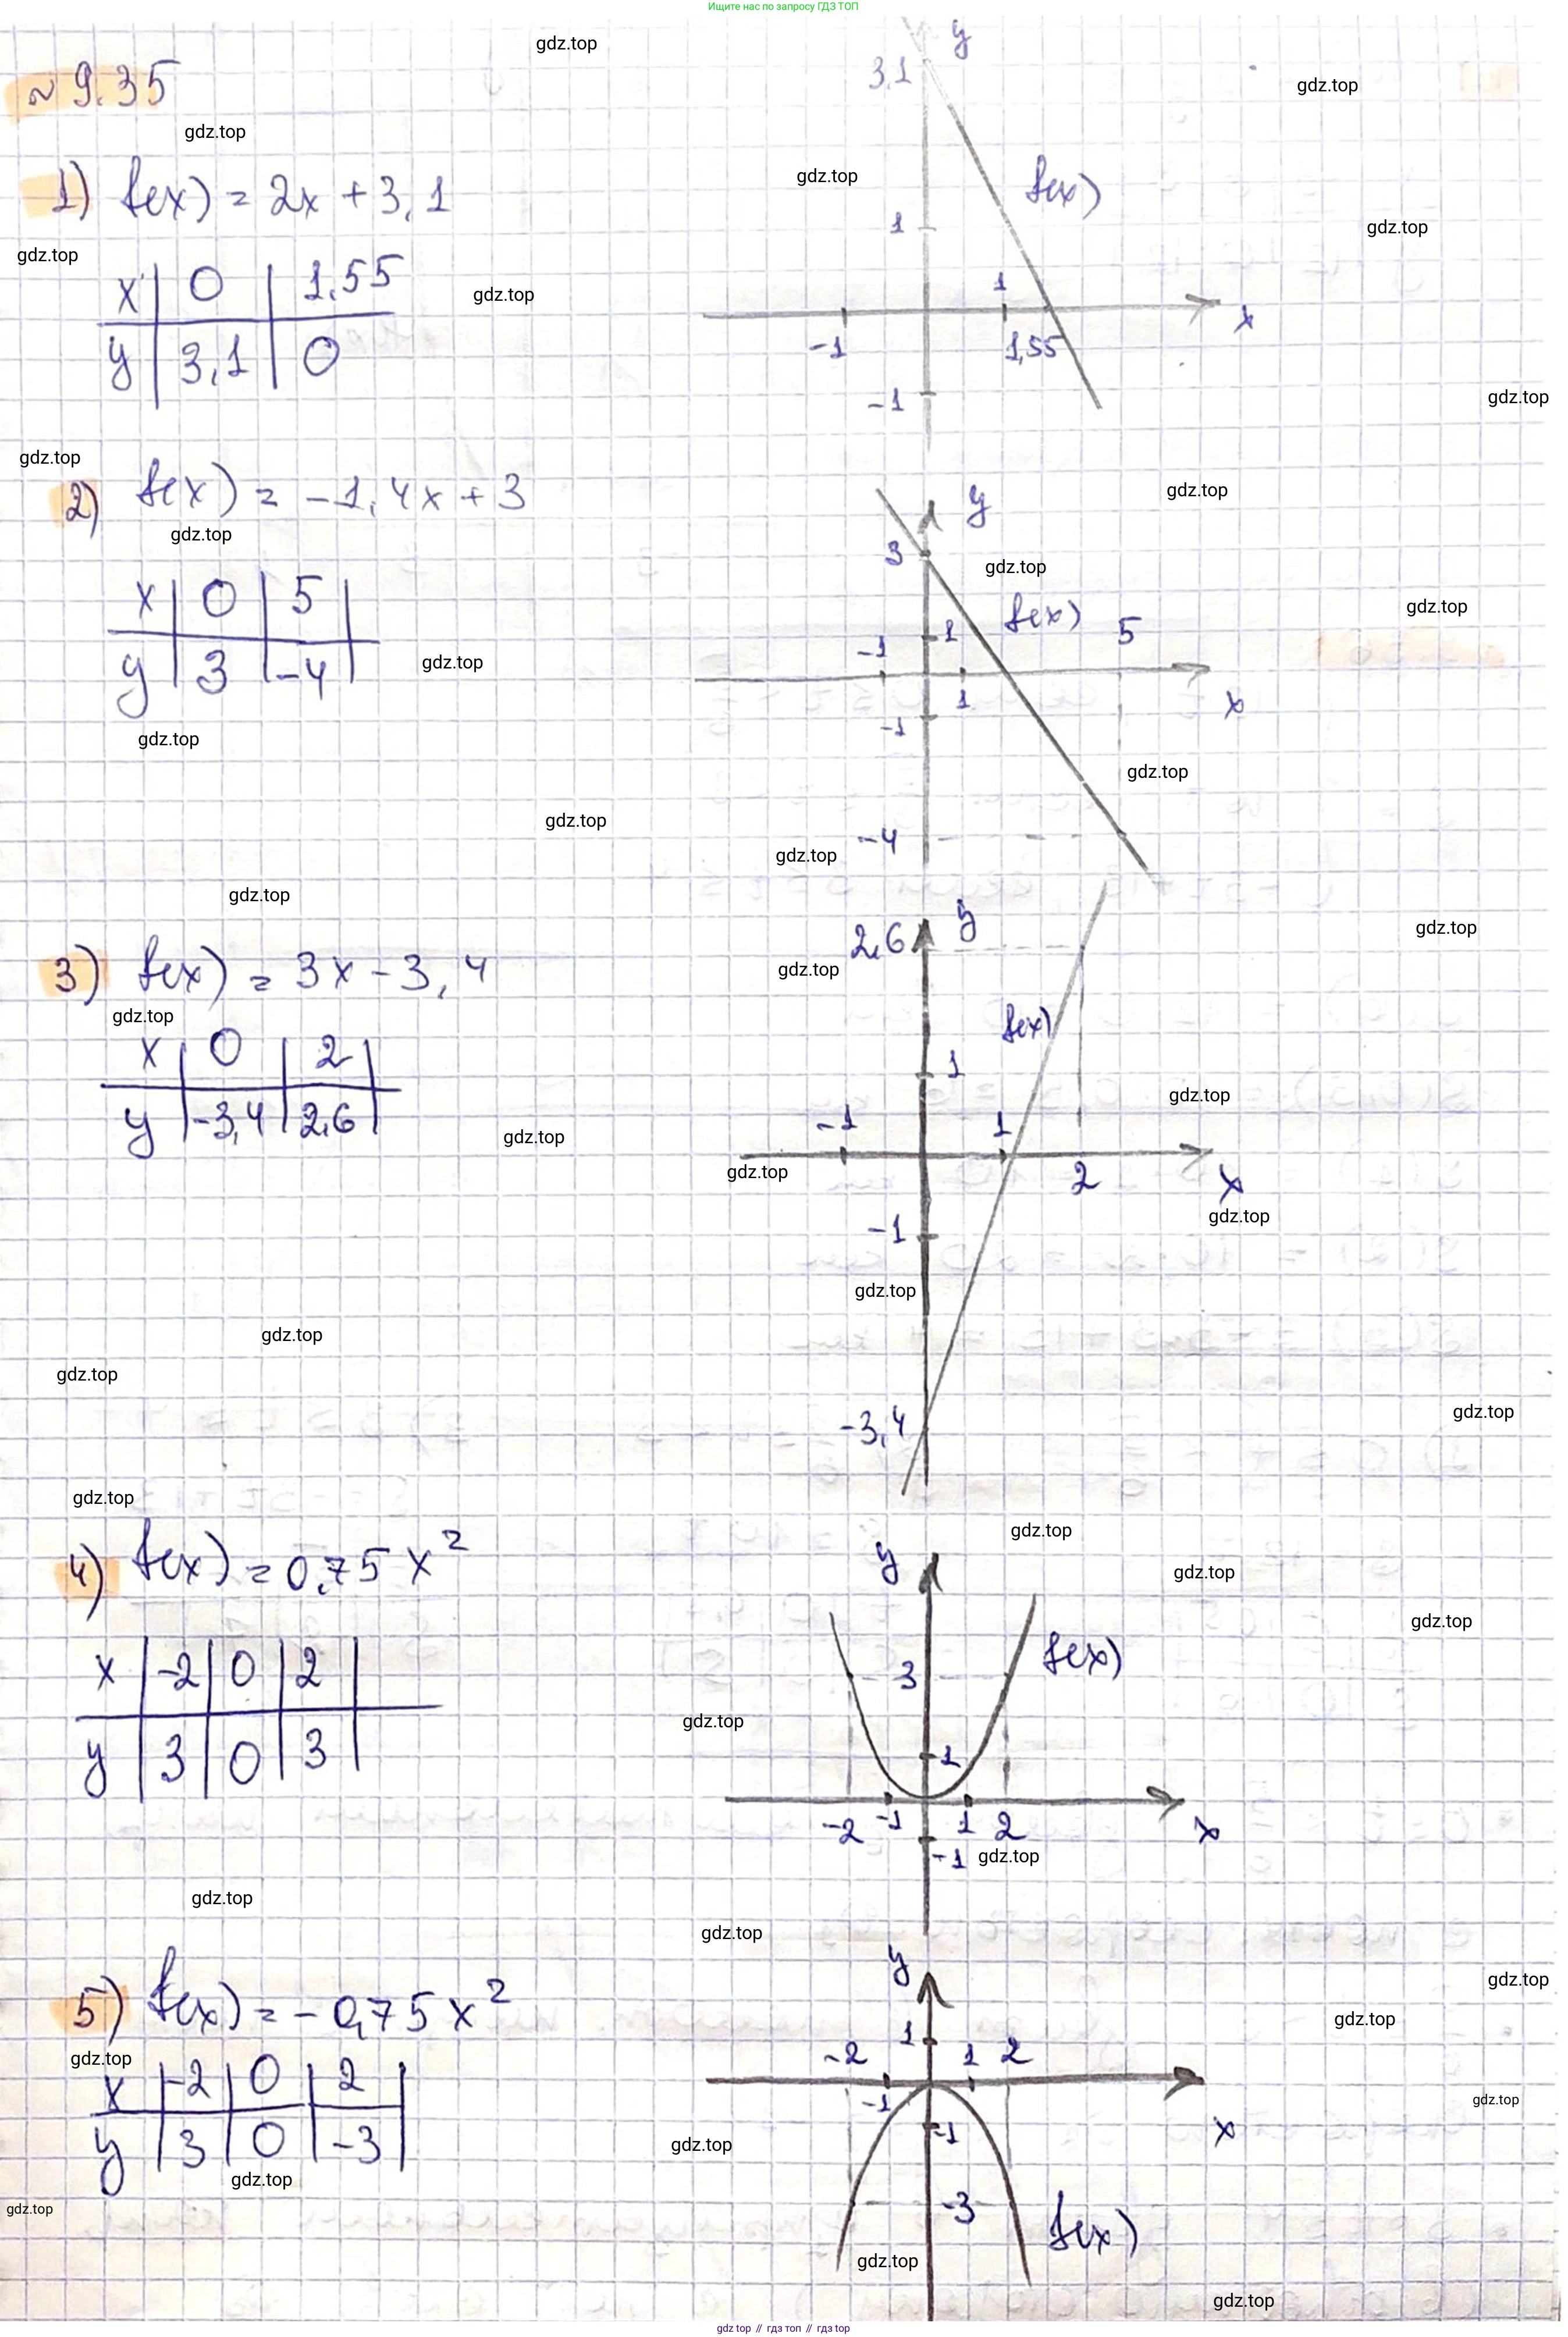 Ищите нас по запросу ГДЗ ТОП
№ 9.35
1) f(x) = 2x + 3,1
x 0 1,55
y 3,1 0
y
3,1
f(x)
1
1
-1
1,55
x
-1
2) f(x) = -1,4x + 3
x 0 5
y 3 -4
y
3
f(x)
5
-1
1
1
x
-1
-4
3) f(x) = 3x - 3,4
x 0 2
y -3,4 2,6
y
2,6
f(x)
1
-1
1
2
x
-1
-3,4
4) f(x) = 0,75x²
x -2 0 2
y 3 0 3
y
3
f(x)
1
-2
-1
1
2
x
-1
5) f(x) = -0,75x²
x -2 0 2
y 3 0 -3
y
1
-2
1
2
-1
-1
x
-3
f(x)
gdz.top
gdz top // гдз топ // гдз top